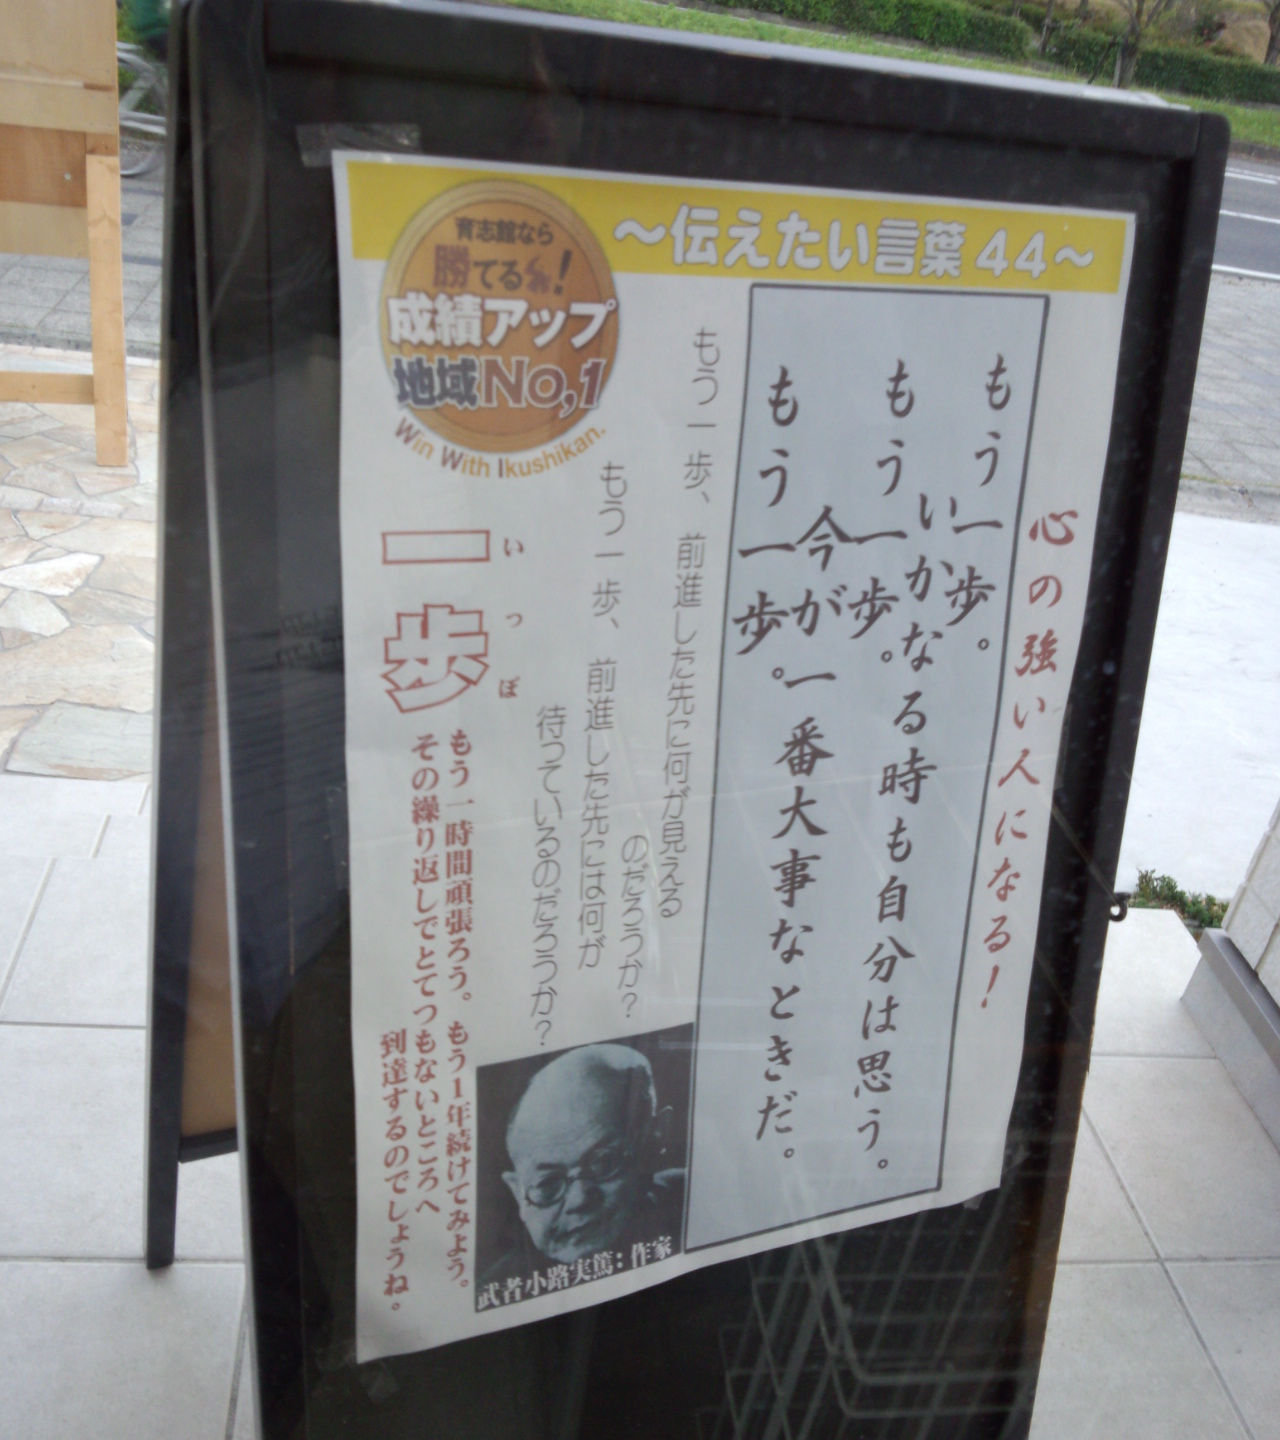 ～伝えたい言葉４４～
育志館なら
勝てる!
成績アップ
地域No,1
Win With Ikushikan.
心の強い人になる！
もう一歩。
いかなる時も自分は思う。
もう一歩。
今が一番大事なときだ。
もう一歩。
もう一歩、前進した先に何が見える
のだろうか？
もう一歩、前進した先には何が
待っているのだろうか？
いっぽ
一歩
もう一時間頑張ろう。もう１年続けてみよう。
その繰り返しでとてつもないところへ
到達するのでしょうね。
武者小路実篤：作家